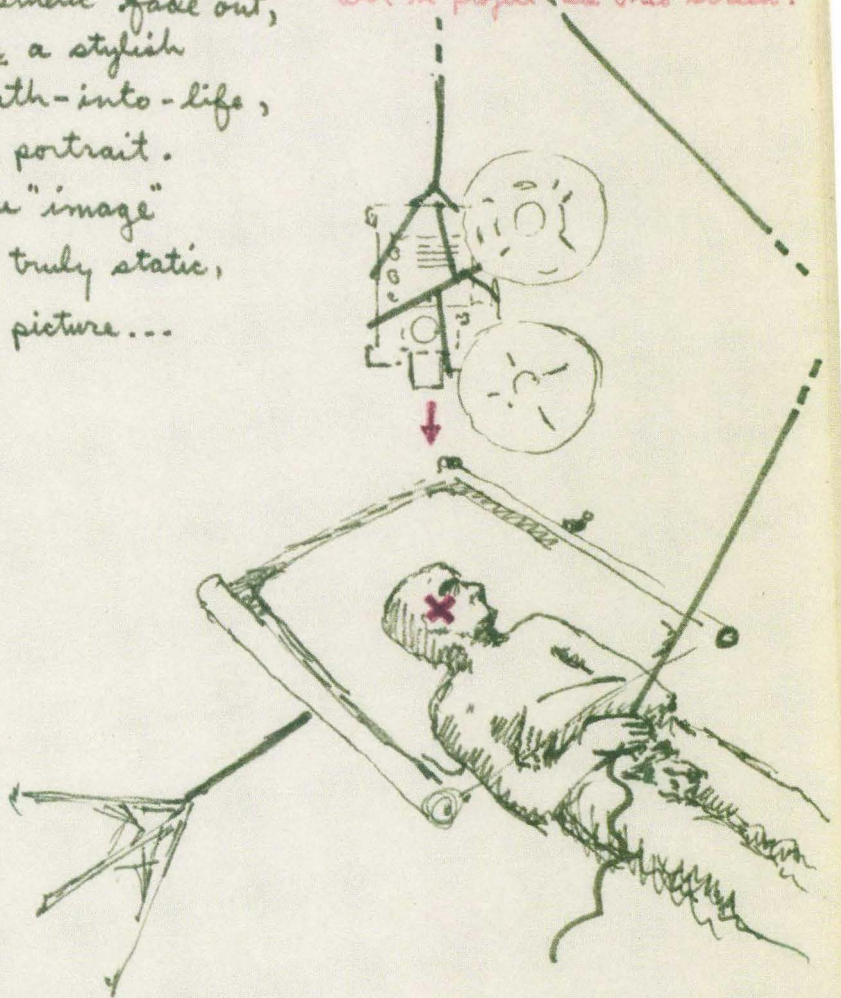 fade out,
a stylish
ath-into-life,
portrait.
"image"
truly static,
picture...
project
screen.